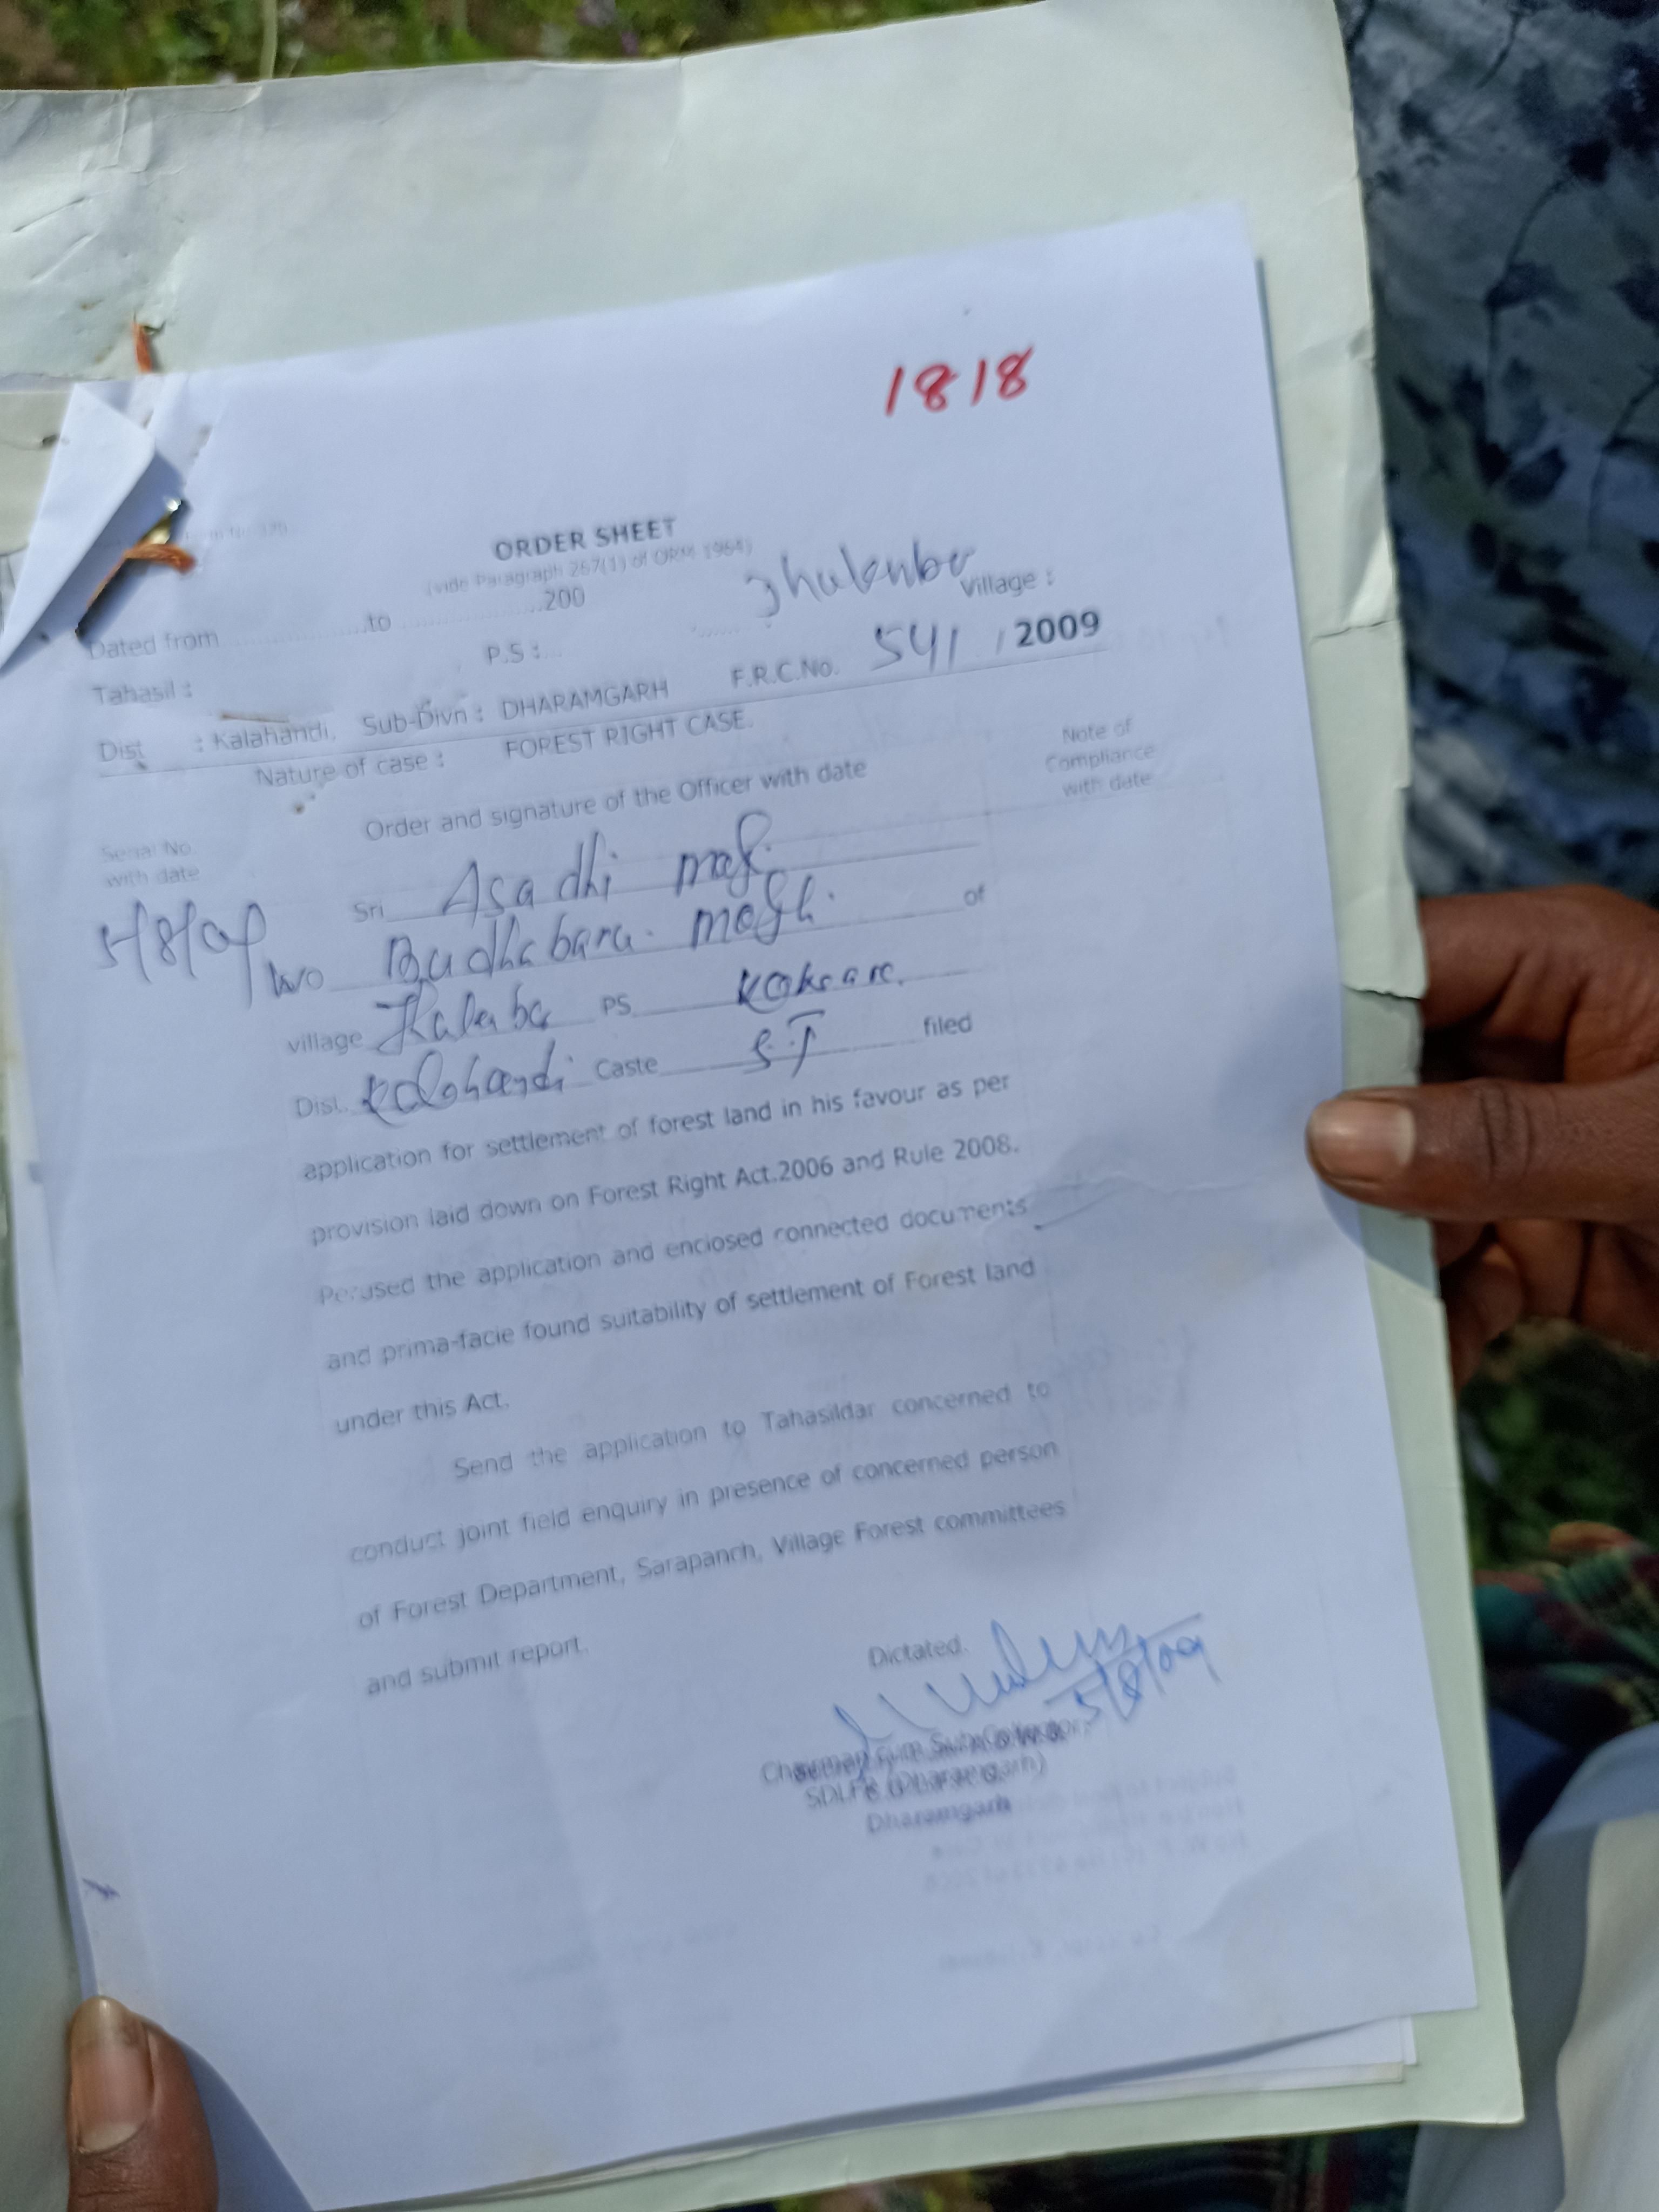 1818
ORDER SHEET
(vide Paragraph 267(1) of ORM 1964)
Dated from ........ to ........ 200
Village :
Tahasil : P.S :.... F.R.C.No. 541 / 2009
Dist : Kalahandi, Sub-Divn : DHARAMGARH
Nature of case : FOREST RIGHT CASE.
Serial No. with date
Order and signature of the Officer with date
Note of Compliance with date
5/8/09
Sri Asadhi
Budhabara of
village PS Koksara
Dist. Kalahandi Caste S.T filed
application for settlement of forest land in his favour as per
provision laid down on Forest Right Act.2006 and Rule 2008.
Perused the application and enclosed connected documents
and prima-facie found suitability of settlement of Forest land
under this Act.
Send the application to Tahasildar concerned to
conduct joint field enquiry in presence of concerned person
of Forest Department, Sarapanch, Village Forest committees
and submit report.
Dictated.
5/8/09
Chairman cum Sub-Collector,
(Dharamgarh)
Dharamgarh